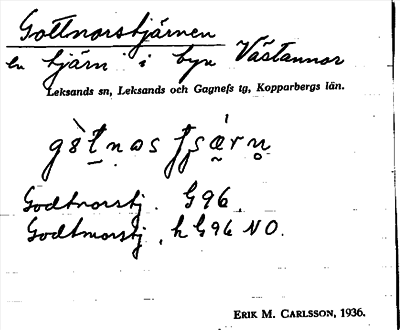 Gottnorstjärnen
en tjärn i byn Västannor
Leksands sn, Leksands och Gagnefs tg, Kopparbergs län.
Godtnorstj. G96.
Godtmorstj. h G96 NO.
ERIK M. CARLSSON, 1936.